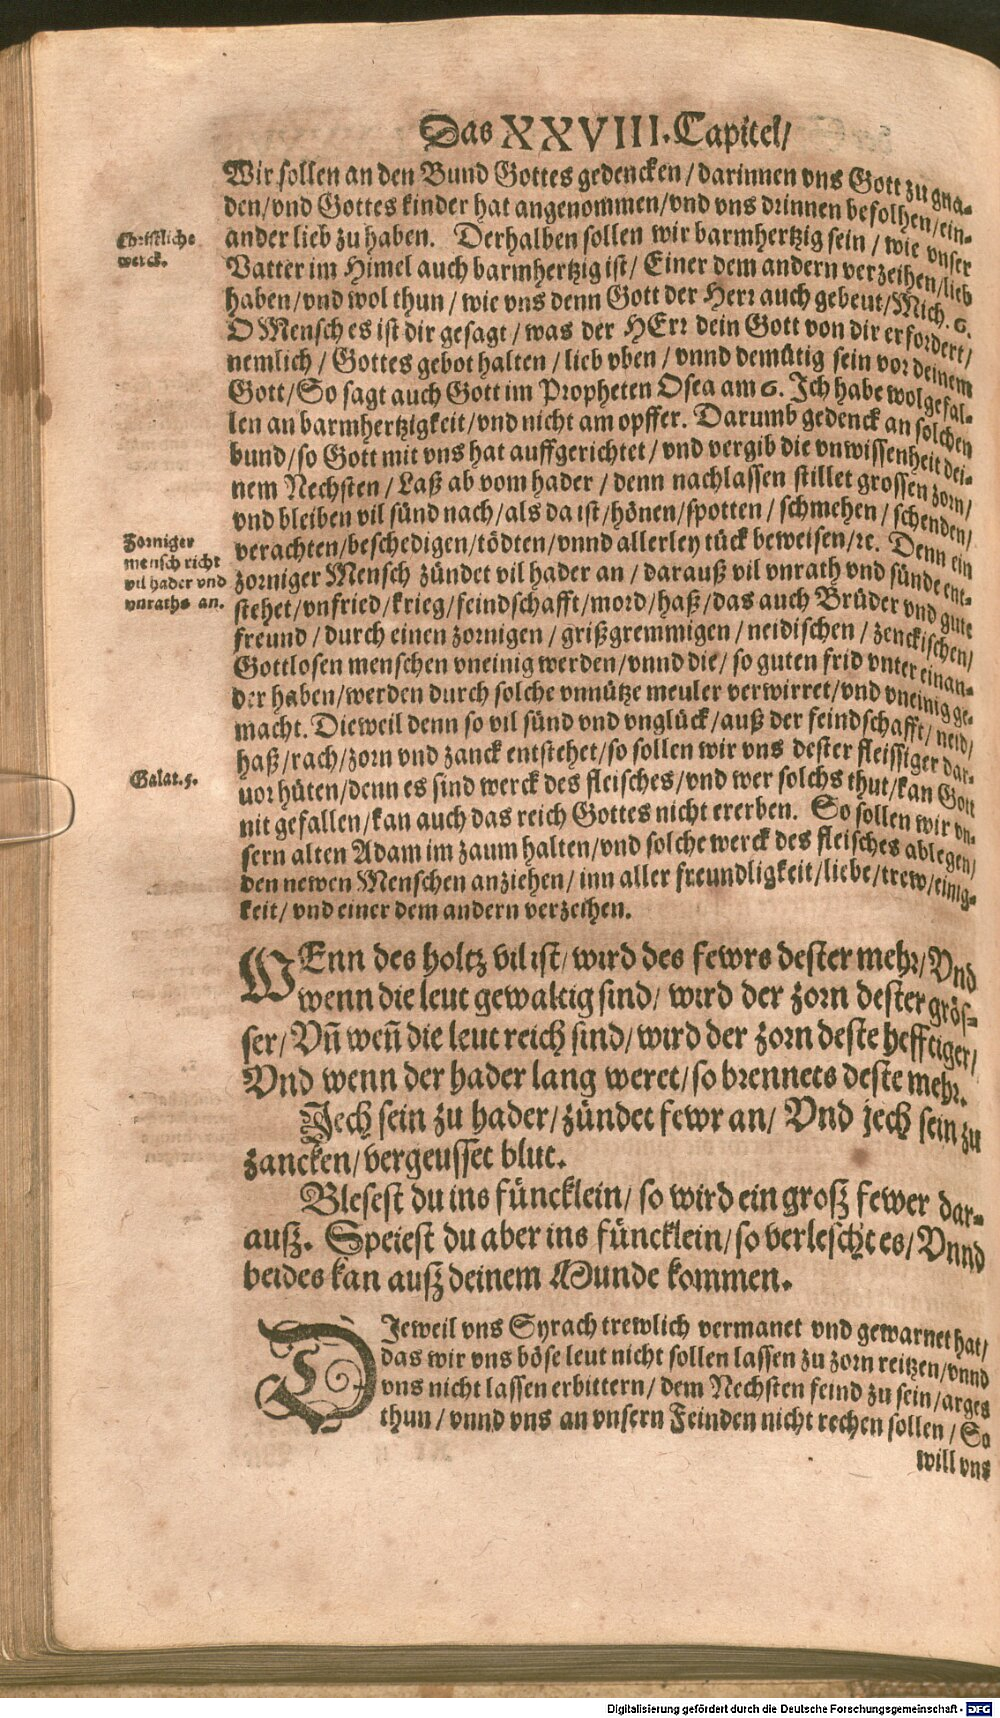 Das XXVIII. Capitel/
Wir sollen an den Bund Gottes gedencken / darinnen vns Gott zu gna-
den/vnd Gottes kinder hat angenommen/vnd vns drinnen befolhen/ein-
Christliche
werck.
ander lieb zu haben. Derhalben sollen wir barmhertzig sein / wie vnser
Vatter im Himel auch barmhertzig ist / Einer dem andern verzeihen/lieb
haben/vnd wol thun / wie vns denn Gott der Herr auch gebeut/Mich. 6.
O Mensch es ist dir gesagt / was der HErr dein Gott von dir erfordert/
nemlich / Gottes gebot halten / lieb vben / vnnd demütig sein vor deinem
Gott/So sagt auch Gott im Propheten Osea am 6. Ich habe wolgefal-
len an barmhertzigkeit/vnd nicht am opffer. Darumb gedenck an solchen
bund/so Gott mit vns hat auffgerichtet / vnd vergib die vnwissenheit dei-
nem Nechsten / Laß ab vom hader / denn nachlassen stillet grossen zorn/
vnd bleiben vil sünd nach/als da ist/hönen/spotten / schmehen / schenden/
Zorniger
mensch richt
vil hader vnd
vnraths an.
verachten/beschedigen/tödten/vnnd allerley tück beweisen/ꝛc. Denn ein
zorniger Mensch zündet vil hader an / darauß vil vnrath vnd sünde ent-
stehet/vnfried/krieg/feindschafft/mord/haß/das auch Brüder vnd gute
freund / durch einen zornigen / grißgremmigen / neidischen / zenckischen/
Gottlosen menschen vneinig werden/vnnd die/ so guten frid vnter einan-
der haben/werden durch solche vnnütze meuler verwirret/vnd vneinig ge-
macht. Dieweil denn so vil sünd vnd vnglück/auß der feindschafft/ neid/
haß/rach/zorn vnd zanck entstehet/so sollen wir vns dester fleissiger dar-
Galat. 5.
uor hüten/denn es sind werck des fleisches/vnd wer solchs thut/kan Gott
nit gefallen/kan auch das reich Gottes nicht ererben. So sollen wir vn-
sern alten Adam im zaum halten/vnd solche werck des fleisches ablegen/
den newen Menschen anziehen/ inn aller freundligkeit/liebe/trew/einig-
keit/ vnd einer dem andern verzeihen.
WEnn des holtz vil ist/ wird des fewrs dester mehr/ Vnd
wenn die leut gewaltig sind/ wird der zorn dester grös-
ser/ Vñ weñ die leut reich sind/ wird der zorn deste hefftiger/
Vnd wenn der hader lang weret/so brennets deste mehr.
Jech sein zu hader/zündet fewr an/ Vnd jech sein zu
zancken/vergeusset blut.
Blesest du ins füncklein/ so wird ein groß fewer dar-
auß. Speiest du aber ins füncklein/so verlescht es/ Vnnd
beides kan auß deinem Munde kommen.
DIeweil vns Syrach trewlich vermanet vnd gewarnet hat/
das wir vns böse leut nicht sollen lassen zu zorn reitzen/vnnd
vns nicht lassen erbittern/ dem Nechsten feind zu sein/arges
thun / vnnd vns an vnsern Feinden nicht rechen sollen / So
will vns
Digitalisierung gefördert durch die Deutsche Forschungsgemeinschaft - DFG